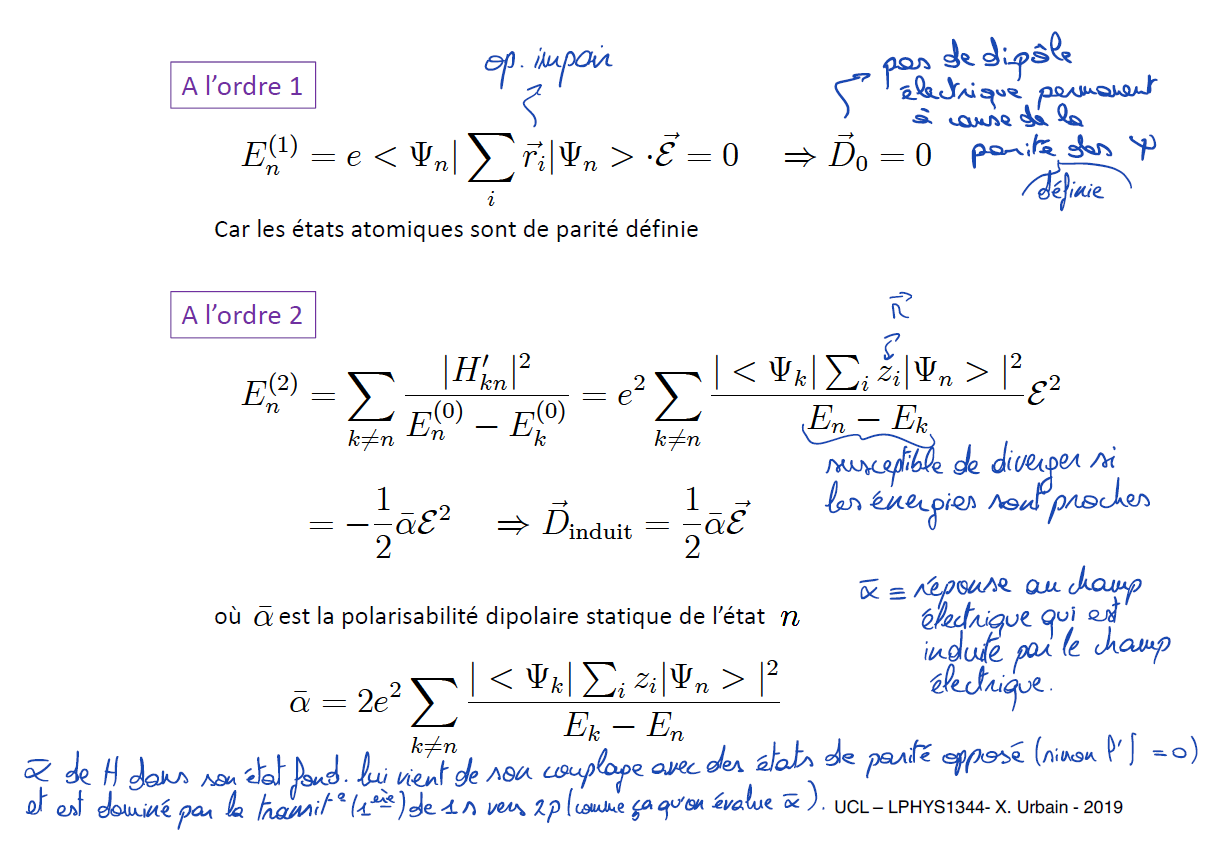 op. impair
pas de dipôle
électrique permanent
à cause de la
parité des ψ
définie
A l'ordre 1
E_n^{(1)} = e < Ψ_n| ∑_i \vec{r}_i |Ψ_n > ·\vec{ℰ} = 0 ⇒ \vec{D}_0 = 0
Car les états atomiques sont de parité définie
A l'ordre 2
\vec{r}
E_n^{(2)} = ∑_{k≠n} |H'_{kn}|^2 / (E_n^{(0)} − E_k^{(0)}) = e^2 ∑_{k≠n} | < Ψ_k| ∑_i z_i |Ψ_n > |^2 / (E_n − E_k) ℰ^2
susceptible de diverger si
les énergies sont proches
= −1/2 \bar{α}ℰ^2 ⇒ \vec{D}_{induit} = 1/2 \bar{α}\vec{ℰ}
\bar{α} ≡ réponse au champ
électrique qui est
induite par le champ
électrique.
où \bar{α} est la polarisabilité dipolaire statique de l'état n
\bar{α} = 2e^2 ∑_{k≠n} | < Ψ_k| ∑_i z_i |Ψ_n > |^2 / (E_k − E_n)
\bar{α} de H dans son état fond. lui vient de son couplage avec des états de parité opposé (sinon l'∫ = 0)
et est dominé par la transit° (1ère) de 1s vers 2p (comme ça qu'on évalue \bar{α}).
UCL – LPHYS1344- X. Urbain - 2019